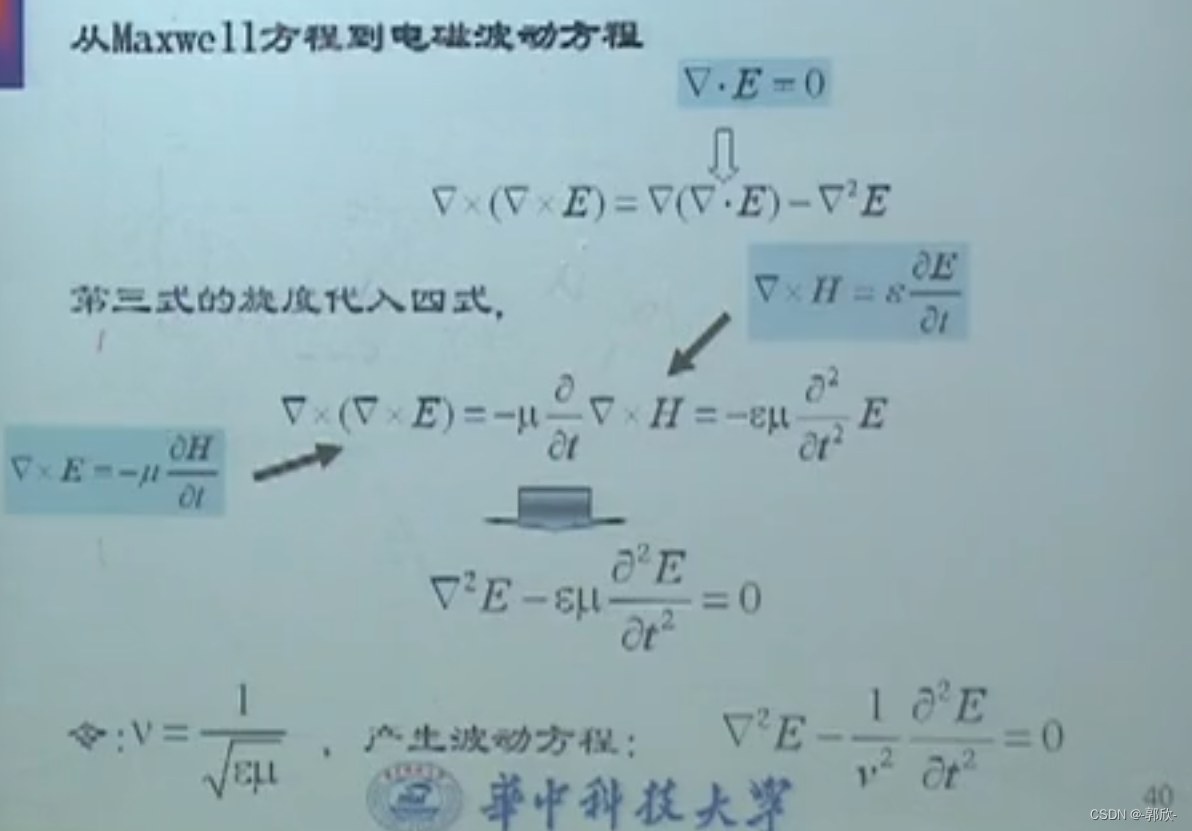 从Maxwell方程到电磁波动方程
∇·E=0
∇×(∇×E)=∇(∇·E)−∇²E
第三式的旋度代入四式,
∇×H=ε ∂E/∂t
∇×(∇×E)=−μ ∂/∂t ∇×H=−εμ ∂²/∂t² E
∇×E=−μ ∂H/∂t
∇²E−εμ ∂²E/∂t²=0
令:ν=1/√εμ , 产生波动方程: ∇²E−1/ν² ∂²E/∂t²=0
華中科技大学
40
CSDN @-郭欣-